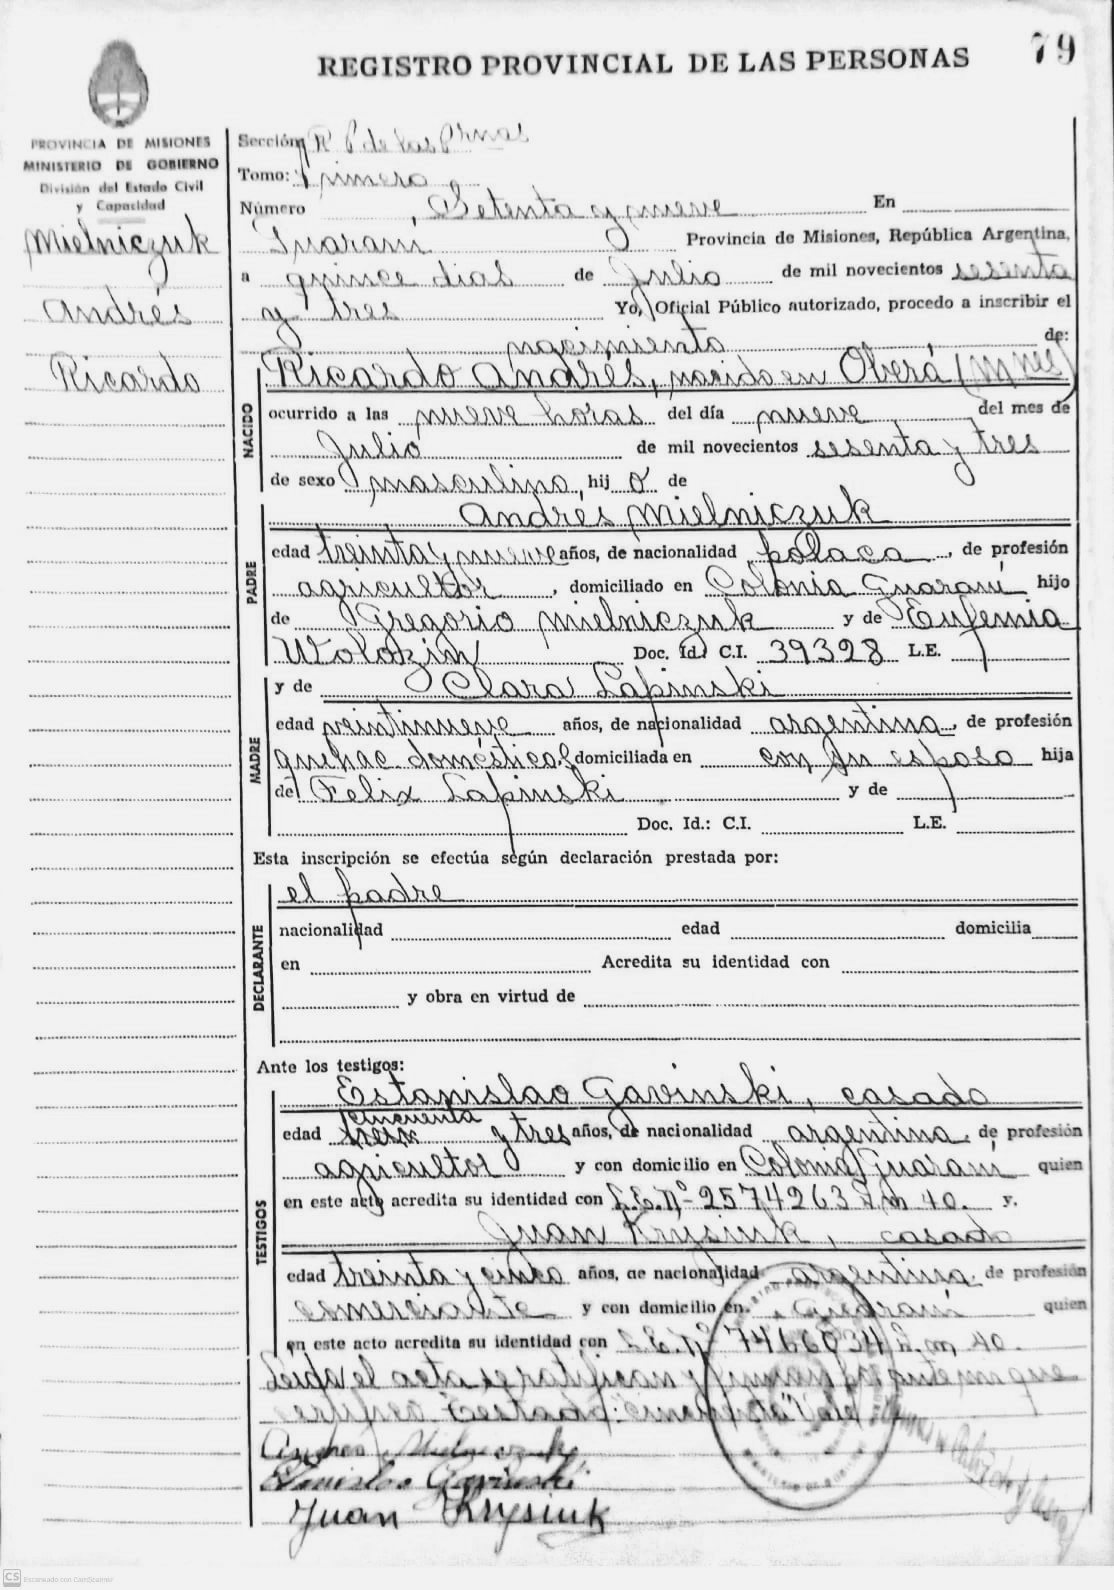 79
REGISTRO PROVINCIAL DE LAS PERSONAS
PROVINCIA DE MISIONES
MINISTERIO DE GOBIERNO
División del Estado Civil
y Capacidad
Mielniczuk
Andrés
Ricardo
Sección R P de las Prnas
Tomo: Primero
Número , Setenta y nueve En
Guaraní Provincia de Misiones, República Argentina,
a quince dias de Julio de mil novecientos sesenta
y tres Yo, Oficial Público autorizado, procedo a inscribir el
nacimiento de:
NACIDO
Ricardo Andrés, nacido en Oberá (Mnes)
ocurrido a las nueve horas del día nueve del mes de
Julio de mil novecientos sesenta y tres
de sexo masculino, hij o de
PADRE
Andres Mielniczuk
edad treinta y nueve años, de nacionalidad polaca, de profesión
agricultor, domiciliado en Colonia Guaraní hijo
de Gregorio Mielniczuk y de Eufemia
Wolozin Doc. Id.: C.I. 39328 L.E.
MADRE
y de Clara Lapinski
edad veintinueve años, de nacionalidad argentina, de profesión
quehac domésticos domiciliada en con su esposo hija
de Felix Lapinski y de
Doc. Id.: C.I. L.E.
Esta inscripción se efectúa según declaración prestada por:
DECLARANTE
el padre
nacionalidad edad domicilia
en Acredita su identidad con
y obra en virtud de
Ante los testigos:
TESTIGOS
Estanislao Gavinski, casado
cincuenta
edad y tres años, de nacionalidad argentina, de profesión
agricultor y con domicilio en Colonia Guaraní quien
en este acto acredita su identidad con L.E. Nº 2574263 D.m 40. y.
Juan Krysiuk, casado
edad treinta y cinco años, de nacionalidad argentina, de profesión
comerciante y con domicilio en Guaraní quien
en este acto acredita su identidad con L.E. Nº D.m 40.
Leida el acta se ratifican y firman por ante mi que
certifico Testado: "cincuenta" Vale
Andrés Mielniczuk
Estanislao Gavinski
Juan Krysiuk
CS Escaneado con CamScanner